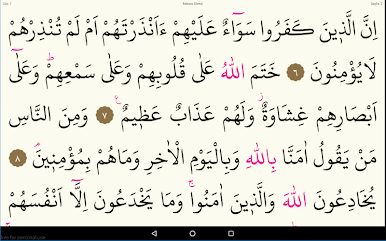 اِنَّ الَّذِيْنَ كَفَرُوْا سَوَآءٌ عَلَيْهِمْ ءَاَنْذَرْتَهُمْ اَمْ لَمْ تُنْذِرْهُمْ
لَايُؤْمِنُوْنَ ٦ خَتَمَ اللّٰهُ عَلٰى قُلُوْبِهِمْ وَعَلٰى سَمْعِهِمْ ؕ وَعَلٰٓى
اَبْصَارِهِمْ غِشَاوَةٌ ؗ وَّلَهُمْ عَذَابٌ عَظِيْمٌ ٧ وَمِنَ النَّاسِ
مَنْ يَّقُوْلُ اٰمَنَّا بِاللّٰهِ وَبِالْيَوْمِ الْاٰخِرِ وَمَاهُمْ بِمُؤْمِنِيْنَ ٨
يُخٰدِعُوْنَ اللّٰهَ وَالَّذِيْنَ اٰمَنُوْا ۚ وَمَا يَخْدَعُوْنَ اِلَّآ اَنْفُسَهُمْ